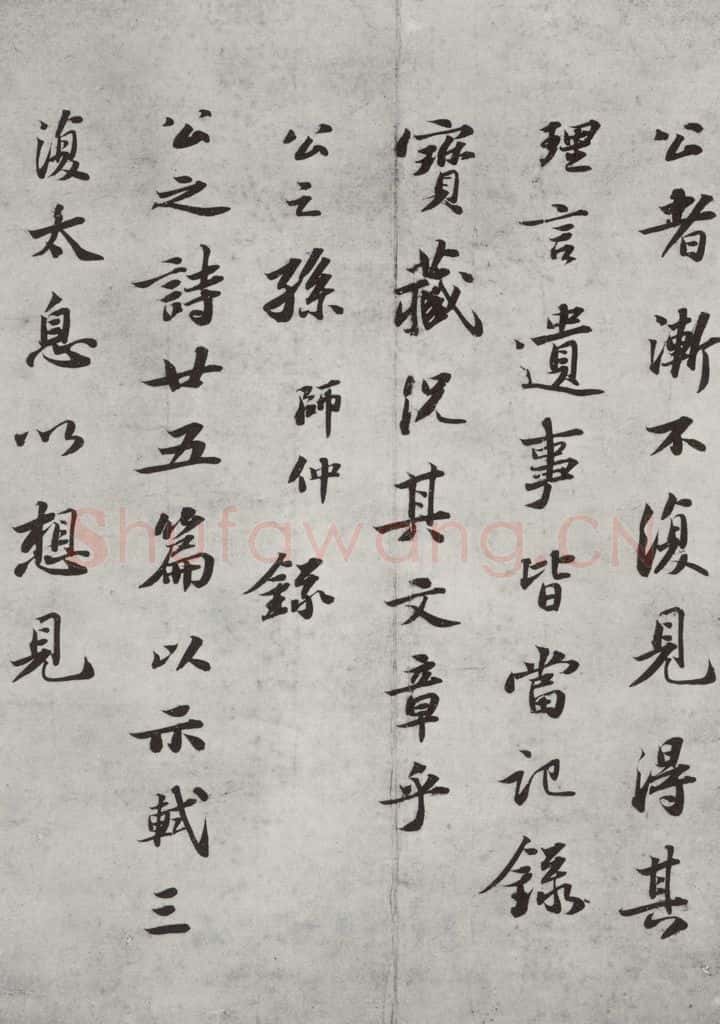 公者漸不復見得其
理言遺事皆當記錄
寶藏況其文章乎
公之孫師仲錄
公之詩廿五篇以示軾三
復太息以想見
Shufawang.CN